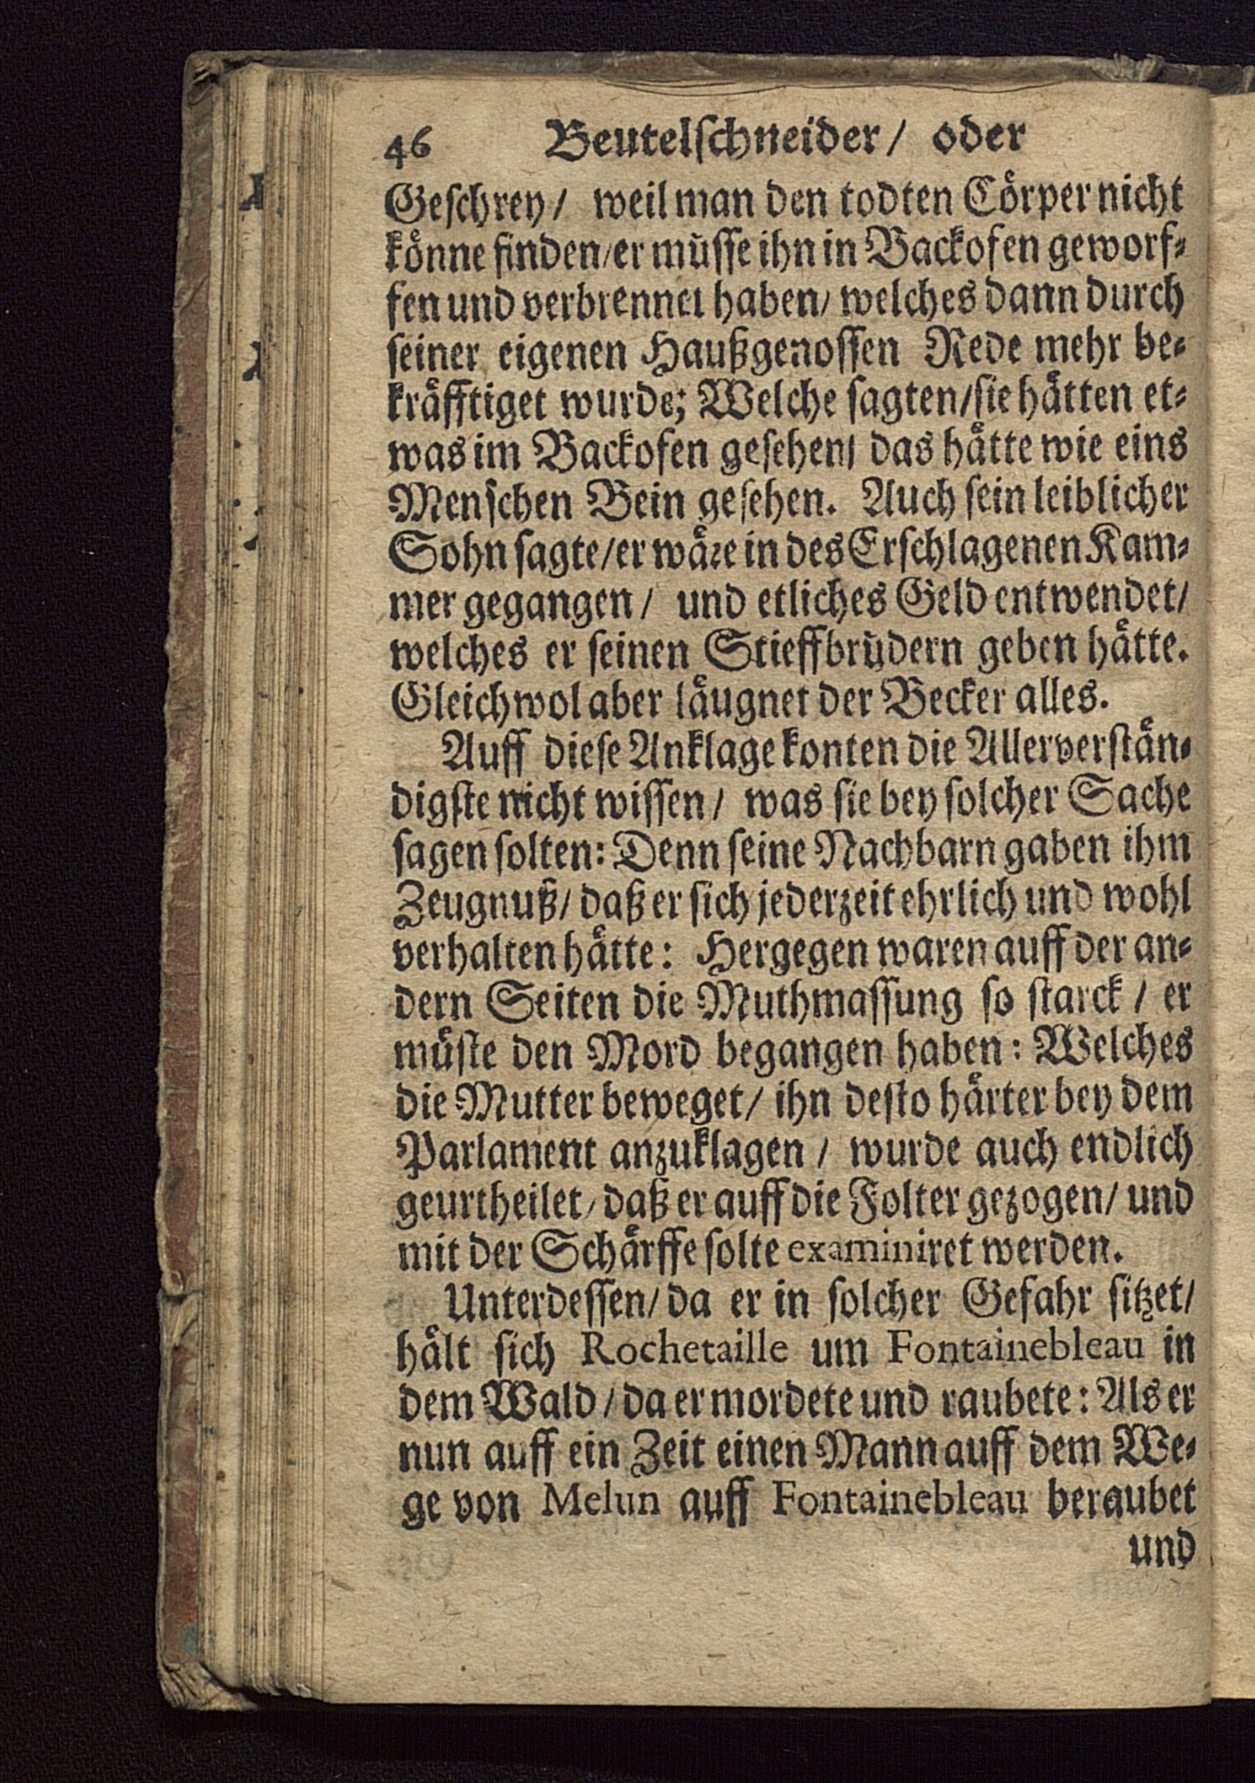 46 Beutelschneider/ oder
Geschrey/ weil man den todten Cörper nicht
könne finden/er müsse ihn in Backofen geworf-
fen und verbrennet haben/ welches dann durch
seiner eigenen Haußgenossen Rede mehr be-
kräfftiget wurde; Welche sagten/sie hätten et-
was im Backofen gesehen/ das hätte wie eins
Menschen Bein gesehen. Auch sein leiblicher
Sohn sagte/er wäre in des Erschlagenen Kam-
mer gegangen/ und etliches Geld entwendet/
welches er seinen Stieffbrüdern geben hätte.
Gleichwol aber läugnet der Becker alles.
Auff diese Anklage konten die Allerverstän-
digste nicht wissen/ was sie bey solcher Sache
sagen solten: Denn seine Nachbarn gaben ihm
Zeugnuß/ daß er sich jederzeit ehrlich und wohl
verhalten hätte: Hergegen waren auff der an-
dern Seiten die Muthmassung so starck / er
müste den Mord begangen haben: Welches
die Mutter beweget/ ihn desto härter bey dem
Parlament anzuklagen / wurde auch endlich
geurtheilet/ daß er auff die Folter gezogen/ und
mit der Schärffe solte examiniret werden.
Unterdessen/ da er in solcher Gefahr sitzet/
hält sich Rochetaille um Fontainebleau in
dem Wald / da er mordete und raubete: Als er
nun auff ein Zeit einen Mann auff dem We-
ge von Melun auff Fontainebleau beraubet
und